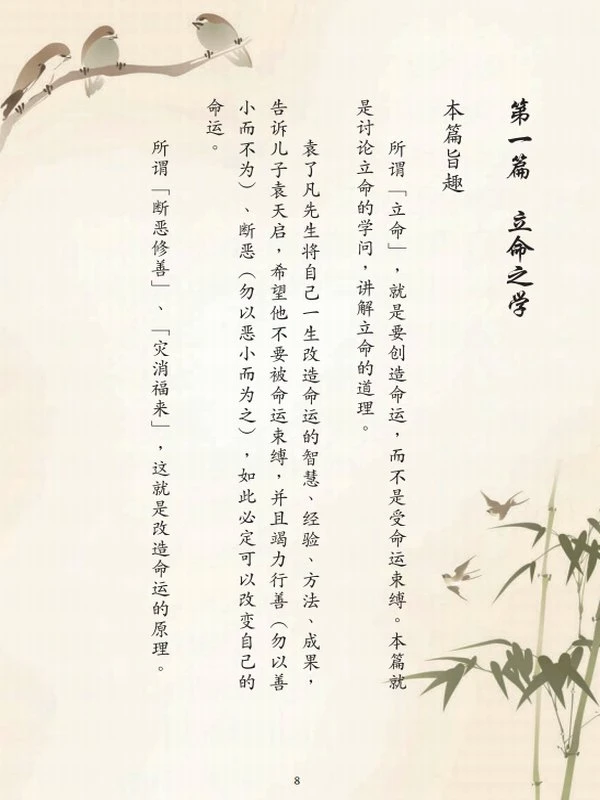 第一篇 立命之学
本篇旨趣
所谓「立命」，就是要创造命运，而不是受命运束缚。本篇就
是讨论立命的学问，讲解立命的道理。
袁了凡先生将自己一生改造命运的智慧、经验、方法、成果，
告诉儿子袁天启，希望他不要被命运束缚，并且竭力行善（勿以善
小而不为）、断恶（勿以恶小而为之），如此必定可以改变自己的
命运。
所谓「断恶修善」、「灾消福来」，这就是改造命运的原理。
8